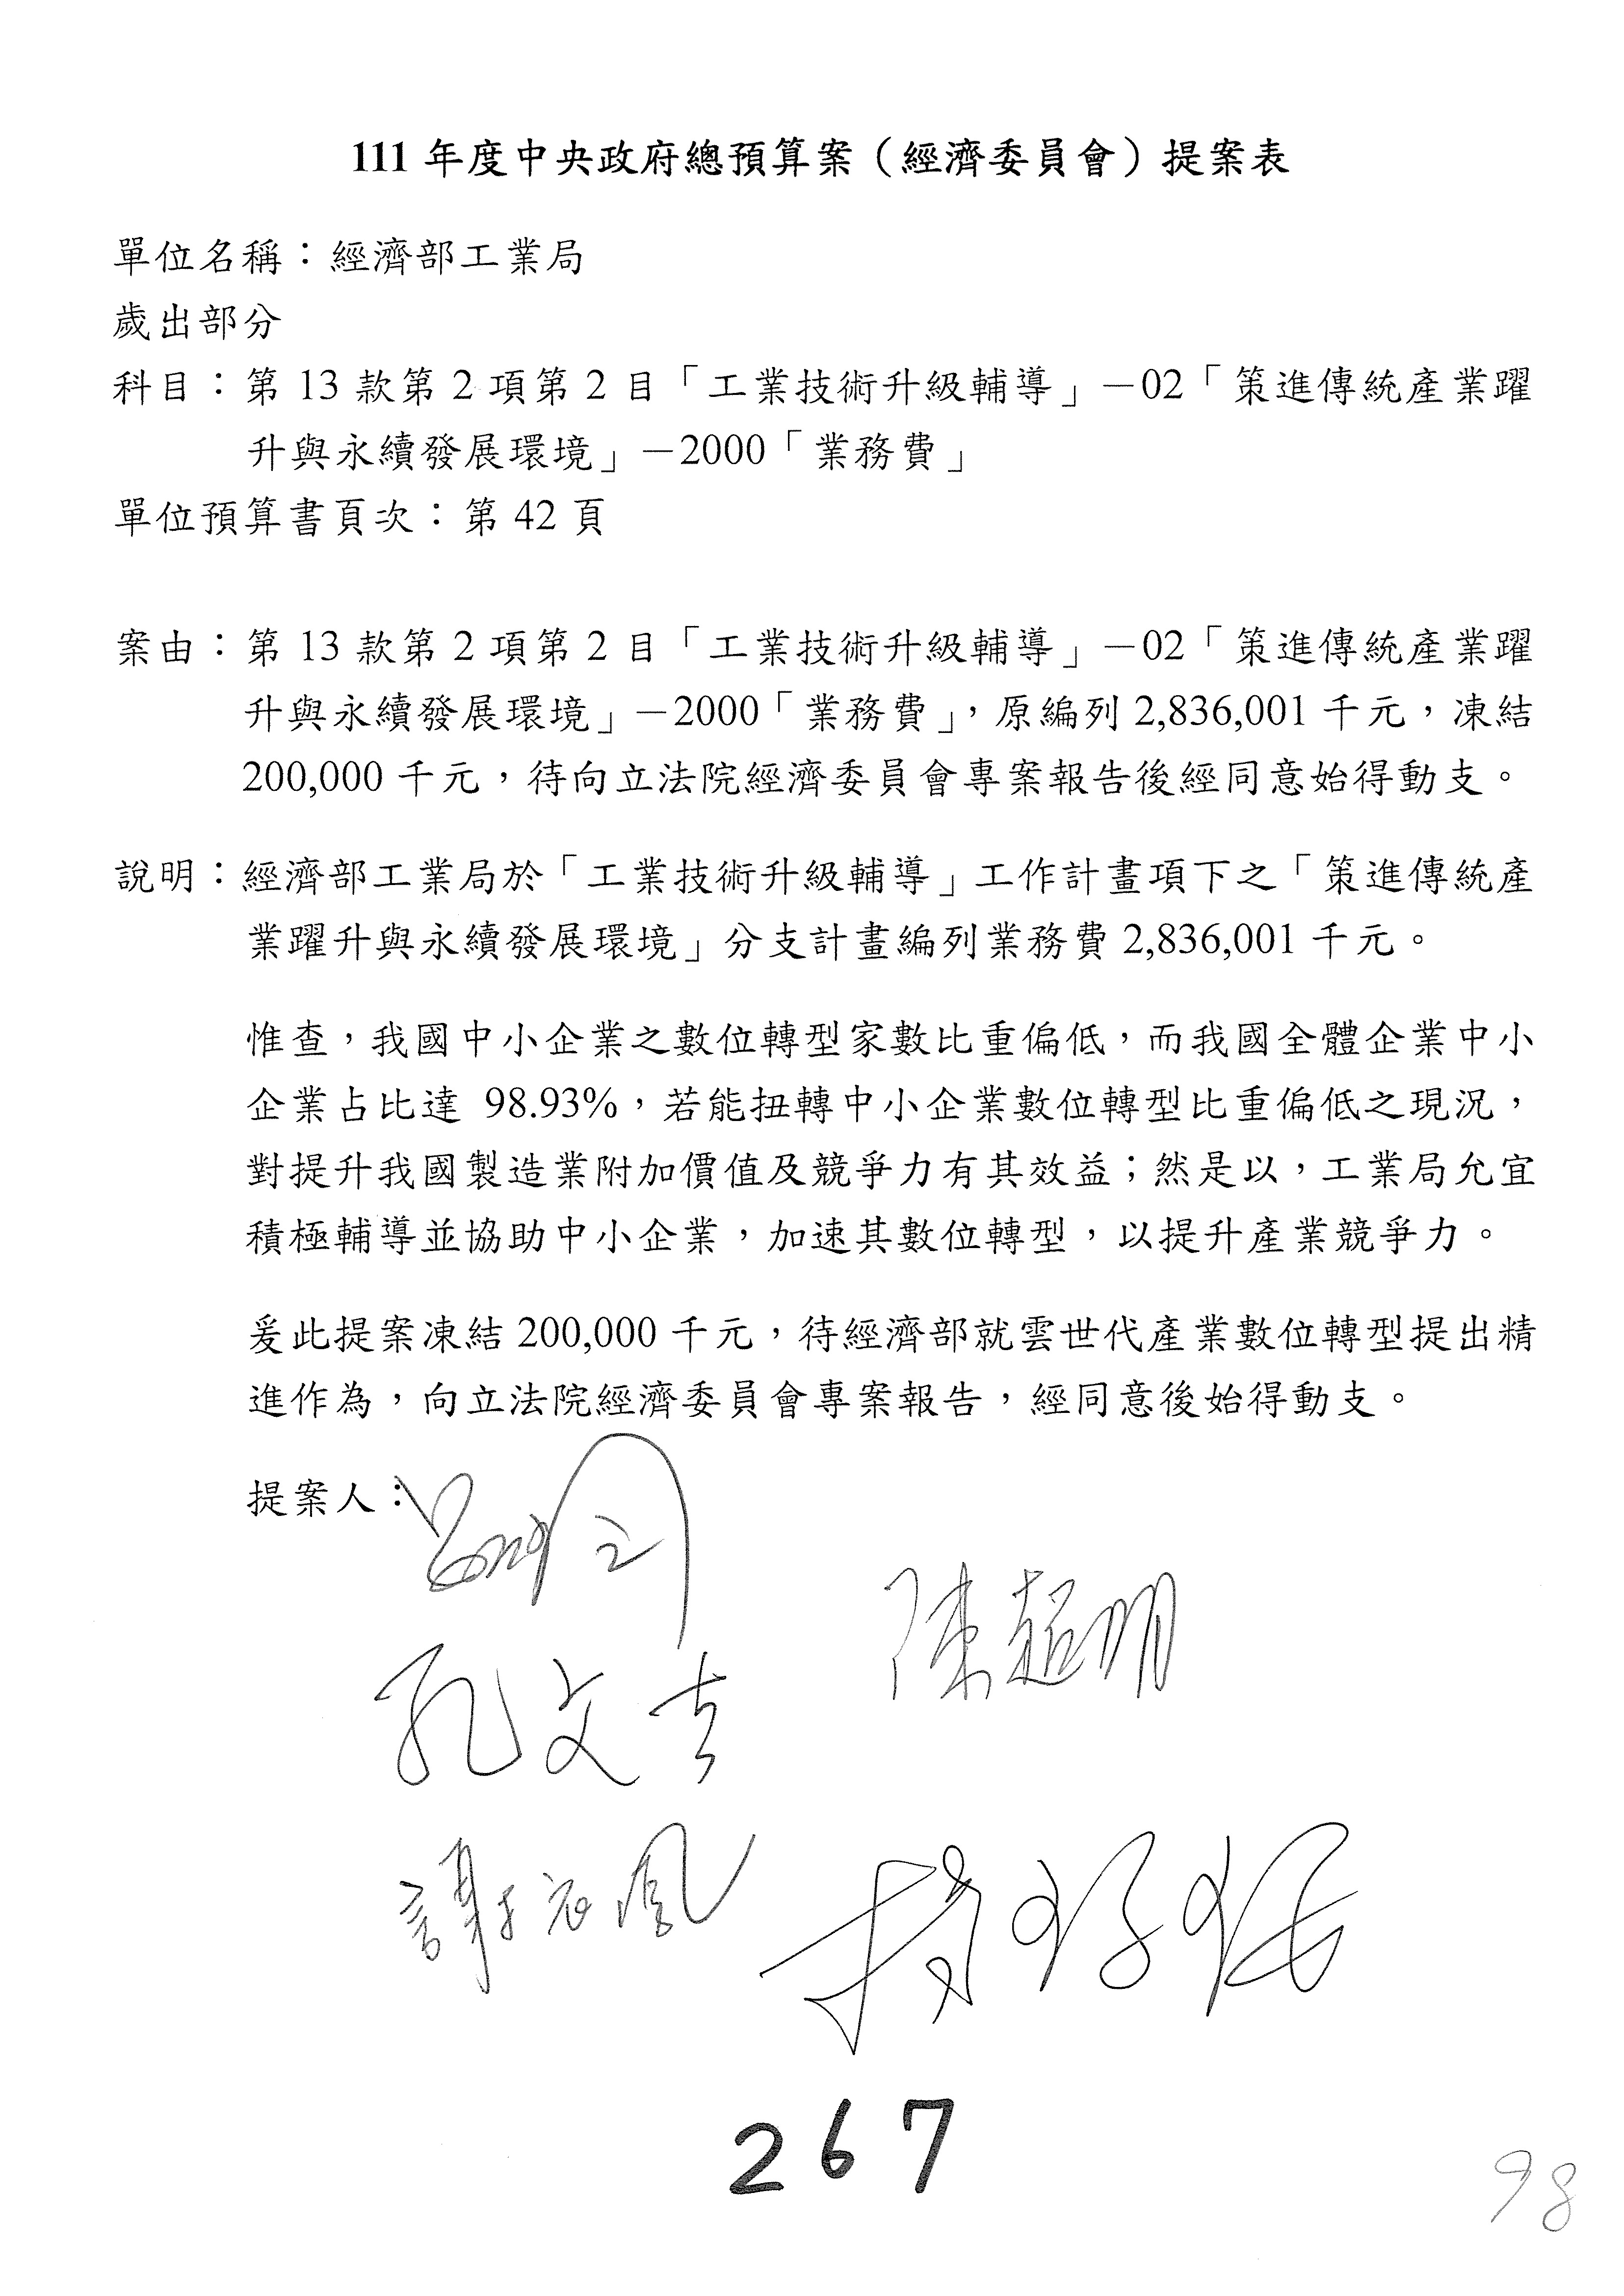 111 年度中央政府總預算案（經濟委員會）提案表
單位名稱：經濟部工業局
歲出部分
科目：第 13 款第 2 項第 2 目「工業技術升級輔導」－02「策進傳統產業躍
升與永續發展環境」－2000「業務費」
單位預算書頁次：第 42 頁
案由：第 13 款第 2 項第 2 目「工業技術升級輔導」－02「策進傳統產業躍
升與永續發展環境」－2000「業務費」，原編列 2,836,001 千元，凍結
200,000 千元，待向立法院經濟委員會專案報告後經同意始得動支。
說明：經濟部工業局於「工業技術升級輔導」工作計畫項下之「策進傳統產
業躍升與永續發展環境」分支計畫編列業務費 2,836,001 千元。
惟查，我國中小企業之數位轉型家數比重偏低，而我國全體企業中小
企業占比達 98.93%，若能扭轉中小企業數位轉型比重偏低之現況，
對提升我國製造業附加價值及競爭力有其效益；然是以，工業局允宜
積極輔導並協助中小企業，加速其數位轉型，以提升產業競爭力。
爰此提案凍結 200,000 千元，待經濟部就雲世代產業數位轉型提出精
進作為，向立法院經濟委員會專案報告，經同意後始得動支。
提案人：
陳超明
孔文吉
謝衣鳳
267
98